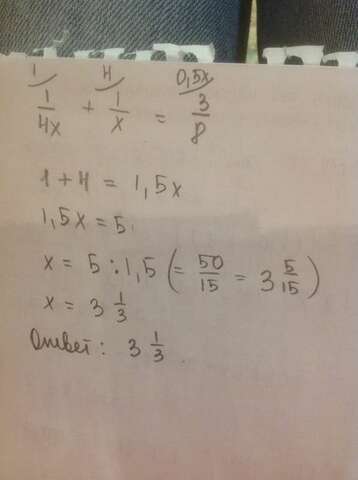 1 4 0,5x
1/4x + 1/x = 3/8
1 + 4 = 1,5x
1,5x = 5
x = 5 : 1,5 (= 50/15 = 3 5/15)
x = 3 1/3
Ответ: 3 1/3